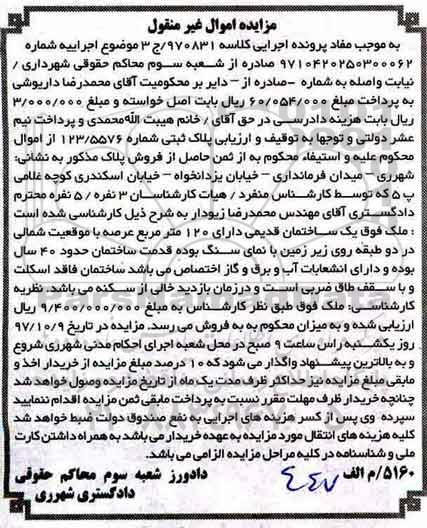 مزایده اموال غیر منقول
به موجب مفاد پرونده اجرایی کلاسه ۹۷۰۸۳۱/ج ۳ موضوع اجراییه شماره
۹۷۱۰۴۲۰۲۵۰۳۰۰۰۶۲ صادره از شعبه سوم محاکم حقوقی شهرداری /
نیابت واصله به شماره -صادره از – دایر بر محکومیت آقای محمدرضا داریوشی
به پرداخت مبلغ ۶۰/۰۵۴/۰۰۰ ریال بابت اصل خواسته و مبلغ ۳/۰۰۰/۰۰۰
ریال بابت هزینه دادرسی در حق آقای / خانم هیبت الله محمدی و پرداخت نیم
عشر دولتی و توجها به توقیف و ارزیابی پلاک ثبتی شماره ۱۲۳/۵۵۷۶ از اموال
محکوم علیه و استیفاء محکوم به از ثمن حاصل از فروش پلاک مذکور به نشانی:
شهرری – میدان فرمانداری – خیابان یزدانخواه – خیابان اسکندری کوچه غلامی
پ ۵ که توسط کارشناس منفرد / هیات کارشناسان ۳ نفره / ۵ نفره محترم
دادگستری آقای مهندس محمدرضا زیودار به شرح ذیل کارشناسی شده است
: ملک فوق یک ساختمان قدیمی دارای ۱۲۰ متر مربع عرصه با موقعیت شمالی
در دو طبقه روی زیر زمین با نمای سنگ بوده قدمت ساختمان حدود ۴۰ سال
بوده و دارای انشعابات آب و برق و گاز اختصاص می باشد ساختمان فاقد اسکلت
و با سقف طاق ضربی است و درزمان بازدید خالی از سکنه می باشد. نظریه
کارشناسی: ملک فوق طبق نظر کارشناس به مبلغ ۹/۴۰۰/۰۰۰/۰۰۰ ریال
ارزیابی شده و به میزان محکوم به به فروش می رسد. مزایده در تاریخ ۹۷/۱۰/۹
روز یکشنبه راس ساعت ۹ صبح در محل شعبه اجرای احکام مدنی شهرری شروع
و به بالاترین پیشنهاد واگذار می شود که ۱۰ درصد مبلغ مزایده از خریدار اخذ و
مابقی مبلغ مزایده نیز حداکثر ظرف مدت یک ماه از تاریخ مزایده وصول خواهد شد
چنانچه خریدار ظرف مهلت مقرر نسبت به پرداخت مابقی ثمن مزایده اقدام ننمایید
سپرده وی پس از کسر هزینه های اجرایی به نفع صندوق دولت ضبط خواهد شد
کلیه هزینه های انتقال مورد مزایده به عهده خریدار می باشد به همراه داشتن کارت
ملی و شناسنامه در کلیه مراحل مزایده الزامی می باشد.
۵۱۶۰/م الف
دادورز شعبه سوم محاکم حقوقی
دادگستری شهرری